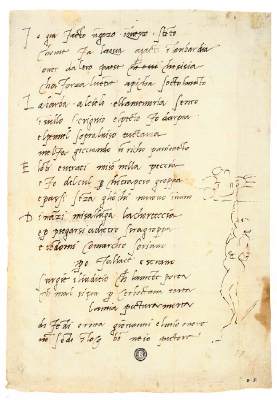 I o gia facto ngozo in questo stento
chome fa lacqua agacti in lonbardia
o ver daltro paese che essi chesisia
cha forza luentre apicha socto lmento
La barba alcielo ellamemoria sento
in sullo scrignio elpecto fo darpia
elpennel sopraluiso tuctavia
melfa gocciando un riccho pauimento
E lonbi entrati miso nella peccia
e fo delcul p chotrapeso groppa
e passi seza gliochi muouo inuano
Dinazi misallunga lachorteccia
e p piegarsi adietro siragroppa
e tendomi comarcho soriano
po fallace e strano
surgie iliuditio ch lamete porta
ch mal si p cerboctana torta
la mia pictura morta
di fedi orma giouanni elmio onore
no sedo loco bo ne io pictore